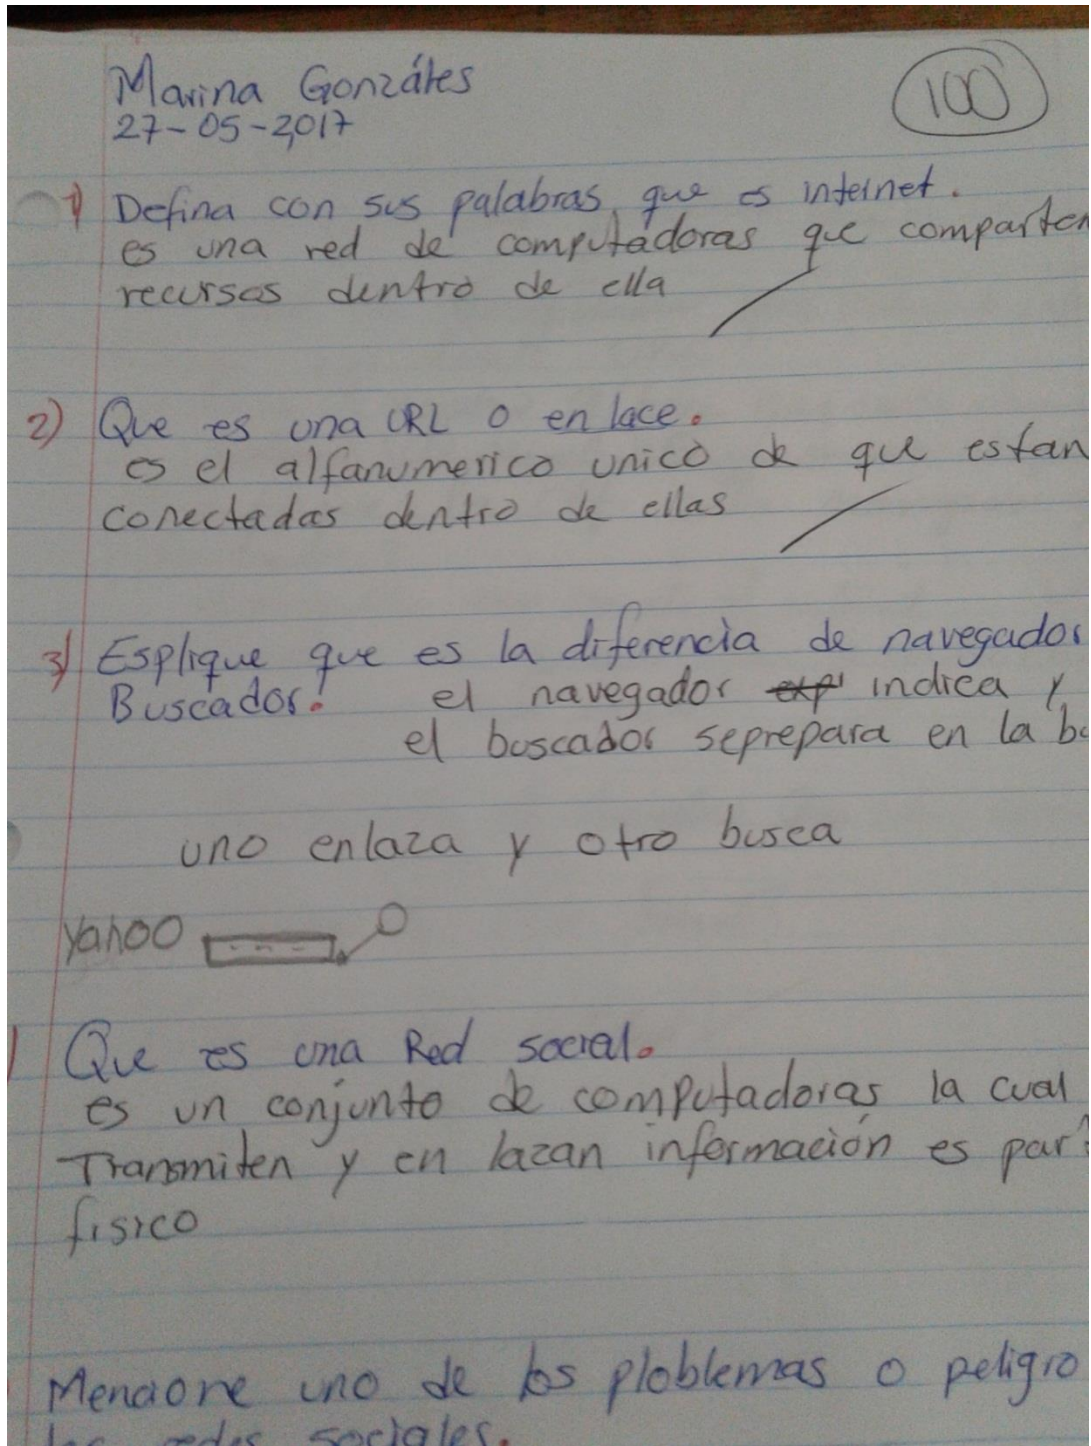 Marina Gonzáles
100
27-05-2017
1) Defina con sus palabras que es internet.
es una red de computadoras que comparten
recursos dentro de ella
2) Que es una URL o en lace.
es el alfanumerico unico de que estan
conectadas dentro de ellas
3) Esplique que es la diferencia de navegador
Buscador. el navegador indica y
el buscador seprepara en la
uno enlaza y otro busca
Yahoo
Que es una Red social.
es un conjunto de computadoras la cual
Transmiten y en lazan información es
fisico
Mencione uno de los ploblemas o peligro
redes sociales.